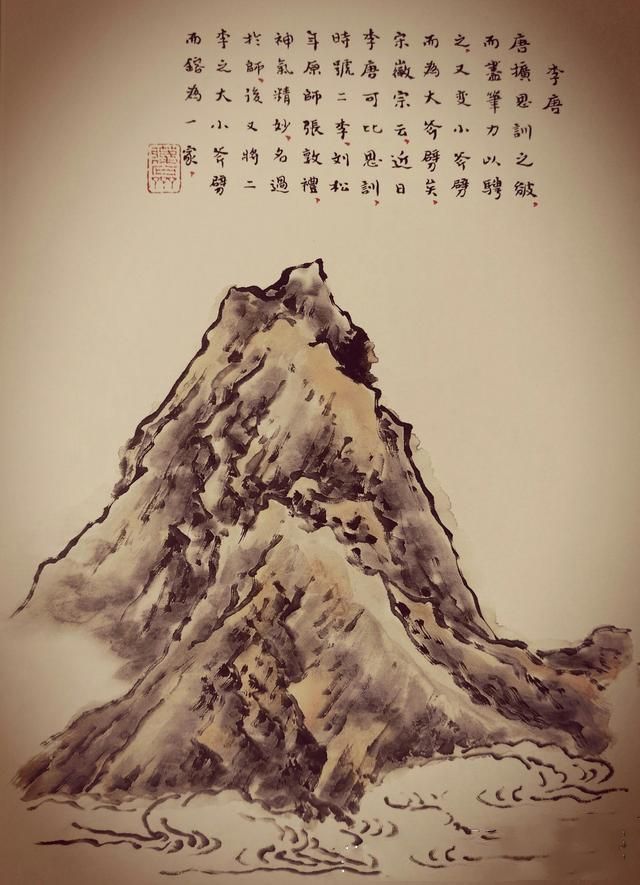 李唐
唐擴思訓之皴
而盡筆力以騁
之又變小斧劈
而為大斧劈矣
宋徽宗云近日
李唐可比思訓
時號二李劉松
年原師張敦禮
神氣精妙名過
於師後又將二
李之大小斧劈
而鎔為一家